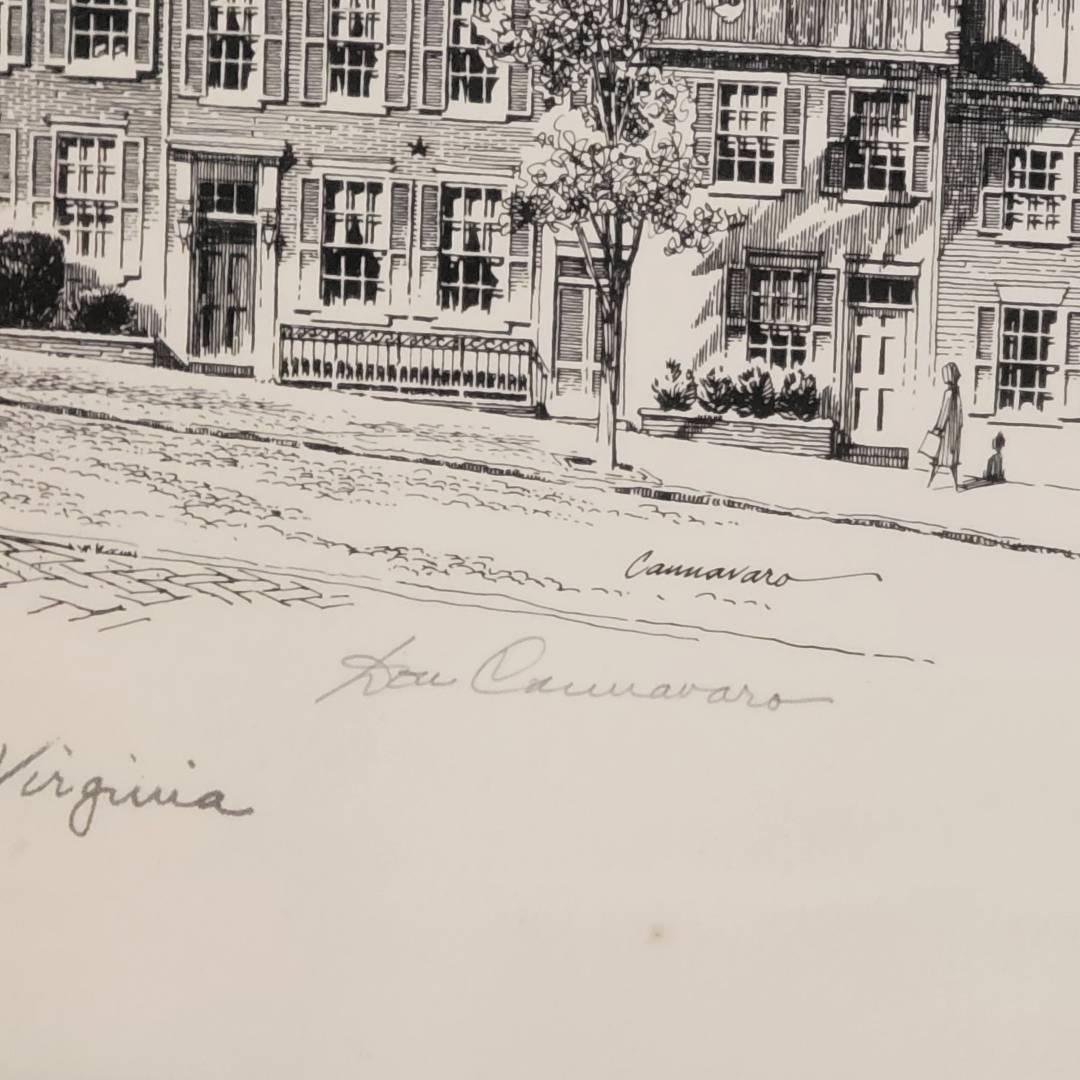 Cannavaro
Don Cannavaro
Virginia